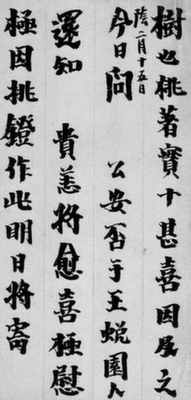 樹也桃著實十甚喜因及之
陰二月十五日
今日問 公安否于王蛻園人
還知 貴恙將愈喜極慰
極因挑鐙作此明日將寄